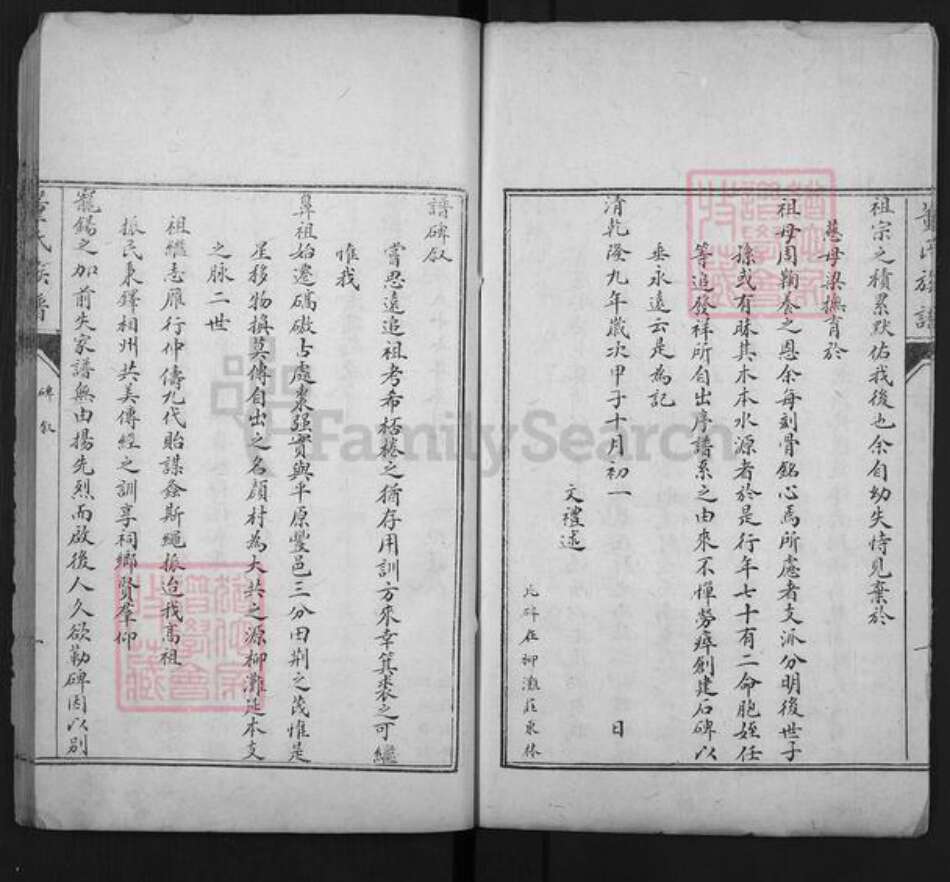 董氏族譜
祖宗之積累默佑我後也余自幼失恃見棄於
慈母梁撫育於
祖母周鞠養之恩余每刻骨銘心焉所慮者支派分明後世子
孫或有昧其木本水源者於是行年七十有二命胞姪任
等追發祥所自出序譜系之由來不憚勞瘁創建石碑以
垂永遠云是為記
清乾隆九年歲次甲子十月初一 日
文禮述
此碑在柳灘莊東林
譜碑敘
嘗思遠追祖考希栝棬之猶存用訓方來幸箕裘之可繼
惟我
鼻祖始遷碻磝占處棗强實與平原豐邑三分田荆之茂惟是
星移物換莫傳自出之名顏村為大共之源柳灘延本支
之脉二世
祖繼志雁行仲儔九代貽謀螽斯繩振迨我高祖
振民秉鐸相州共美傳經之訓享祠鄉賢羣仰
寵錫之加前失家譜無由揚先烈而啟後人久欲勒碑因以別
氏族譜
碑敘
一
FamilySearch